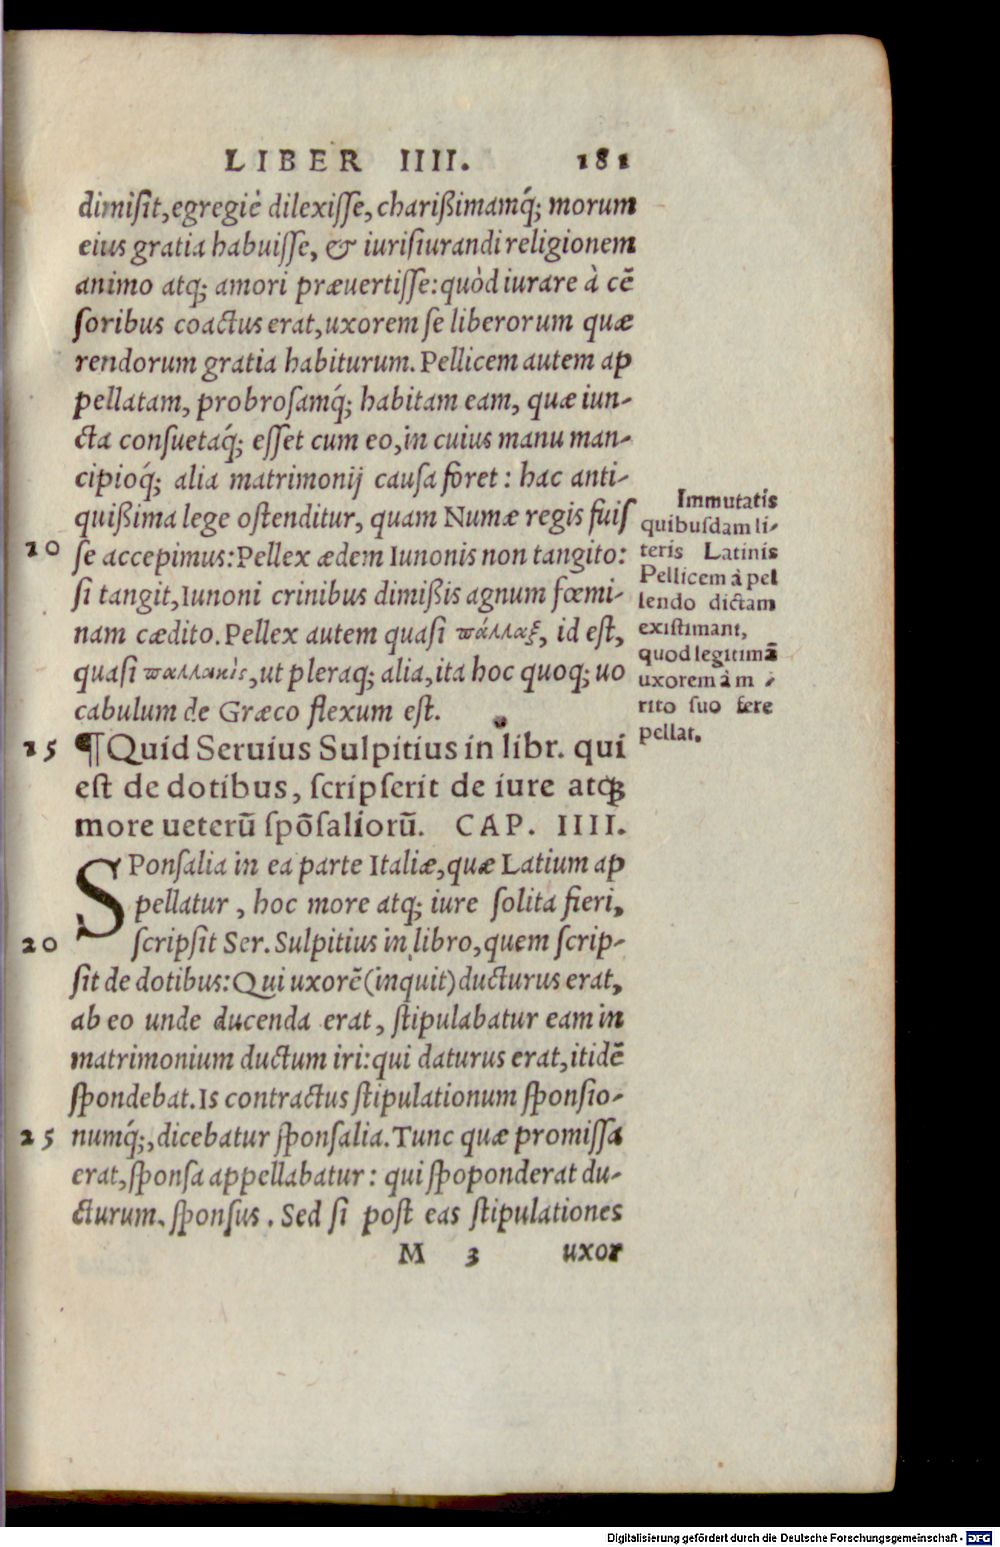 LIBER IIII. 181
dimiſit, egregiè dilexiſſe, charißimamq́; morum
eius gratia habuiſſe, & iurisiurandi religionem
animo atq; amori præuertiſſe: quòd iurare à cē
ſoribus coactus erat, uxorem ſe liberorum quæ
rendorum gratia habiturum. Pellicem autem ap
pellatam, probroſamq́; habitam eam, quæ iun-
cta conſuetaq́; eſſet cum eo, in cuius manu man-
cipioq́; alia matrimonij cauſa foret: hac anti-
quißima lege oſtenditur, quam Numæ regis fuiſ
10 ſe accepimus: Pellex ædem Iunonis non tangito:
ſi tangit, Iunoni crinibus dimißis agnum fœmi-
nam cædito. Pellex autem quaſi πάλλαξ, id eſt,
quaſi παλλακὶς, ut pleraq; alia, ita hoc quoq; uo
cabulum de Græco flexum eſt.
Immutatis
quibuſdam li-
teris Latinis
Pellicem à pel
lendo dictam
exiſtimant,
quod legitimā
uxorem à m
rito ſuo fere
pellat.
15 ¶ Quid Seruius Sulpitius in libr. qui
eſt de dotibus, ſcripſerit de iure atq;
more ueterū ſpōſaliorū. CAP. IIII.
SPonſalia in ea parte Italiæ, quæ Latium ap
pellatur, hoc more atq; iure ſolita fieri,
20 ſcripſit Ser. Sulpitius in libro, quem ſcrip-
ſit de dotibus: Qui uxorē (inquit) ducturus erat,
ab eo unde ducenda erat, ſtipulabatur eam in
matrimonium ductum iri: qui daturus erat, itidē
ſpondebat. Is contractus ſtipulationum ſponſio-
25 numq́;, dicebatur ſponſalia. Tunc quæ promiſſa
erat, ſponſa appellabatur: qui ſpoponderat du-
cturum, ſponſus. Sed ſi poſt eas ſtipulationes
M 3 uxor
Digitalisierung gefördert durch die Deutsche Forschungsgemeinschaft - DFG